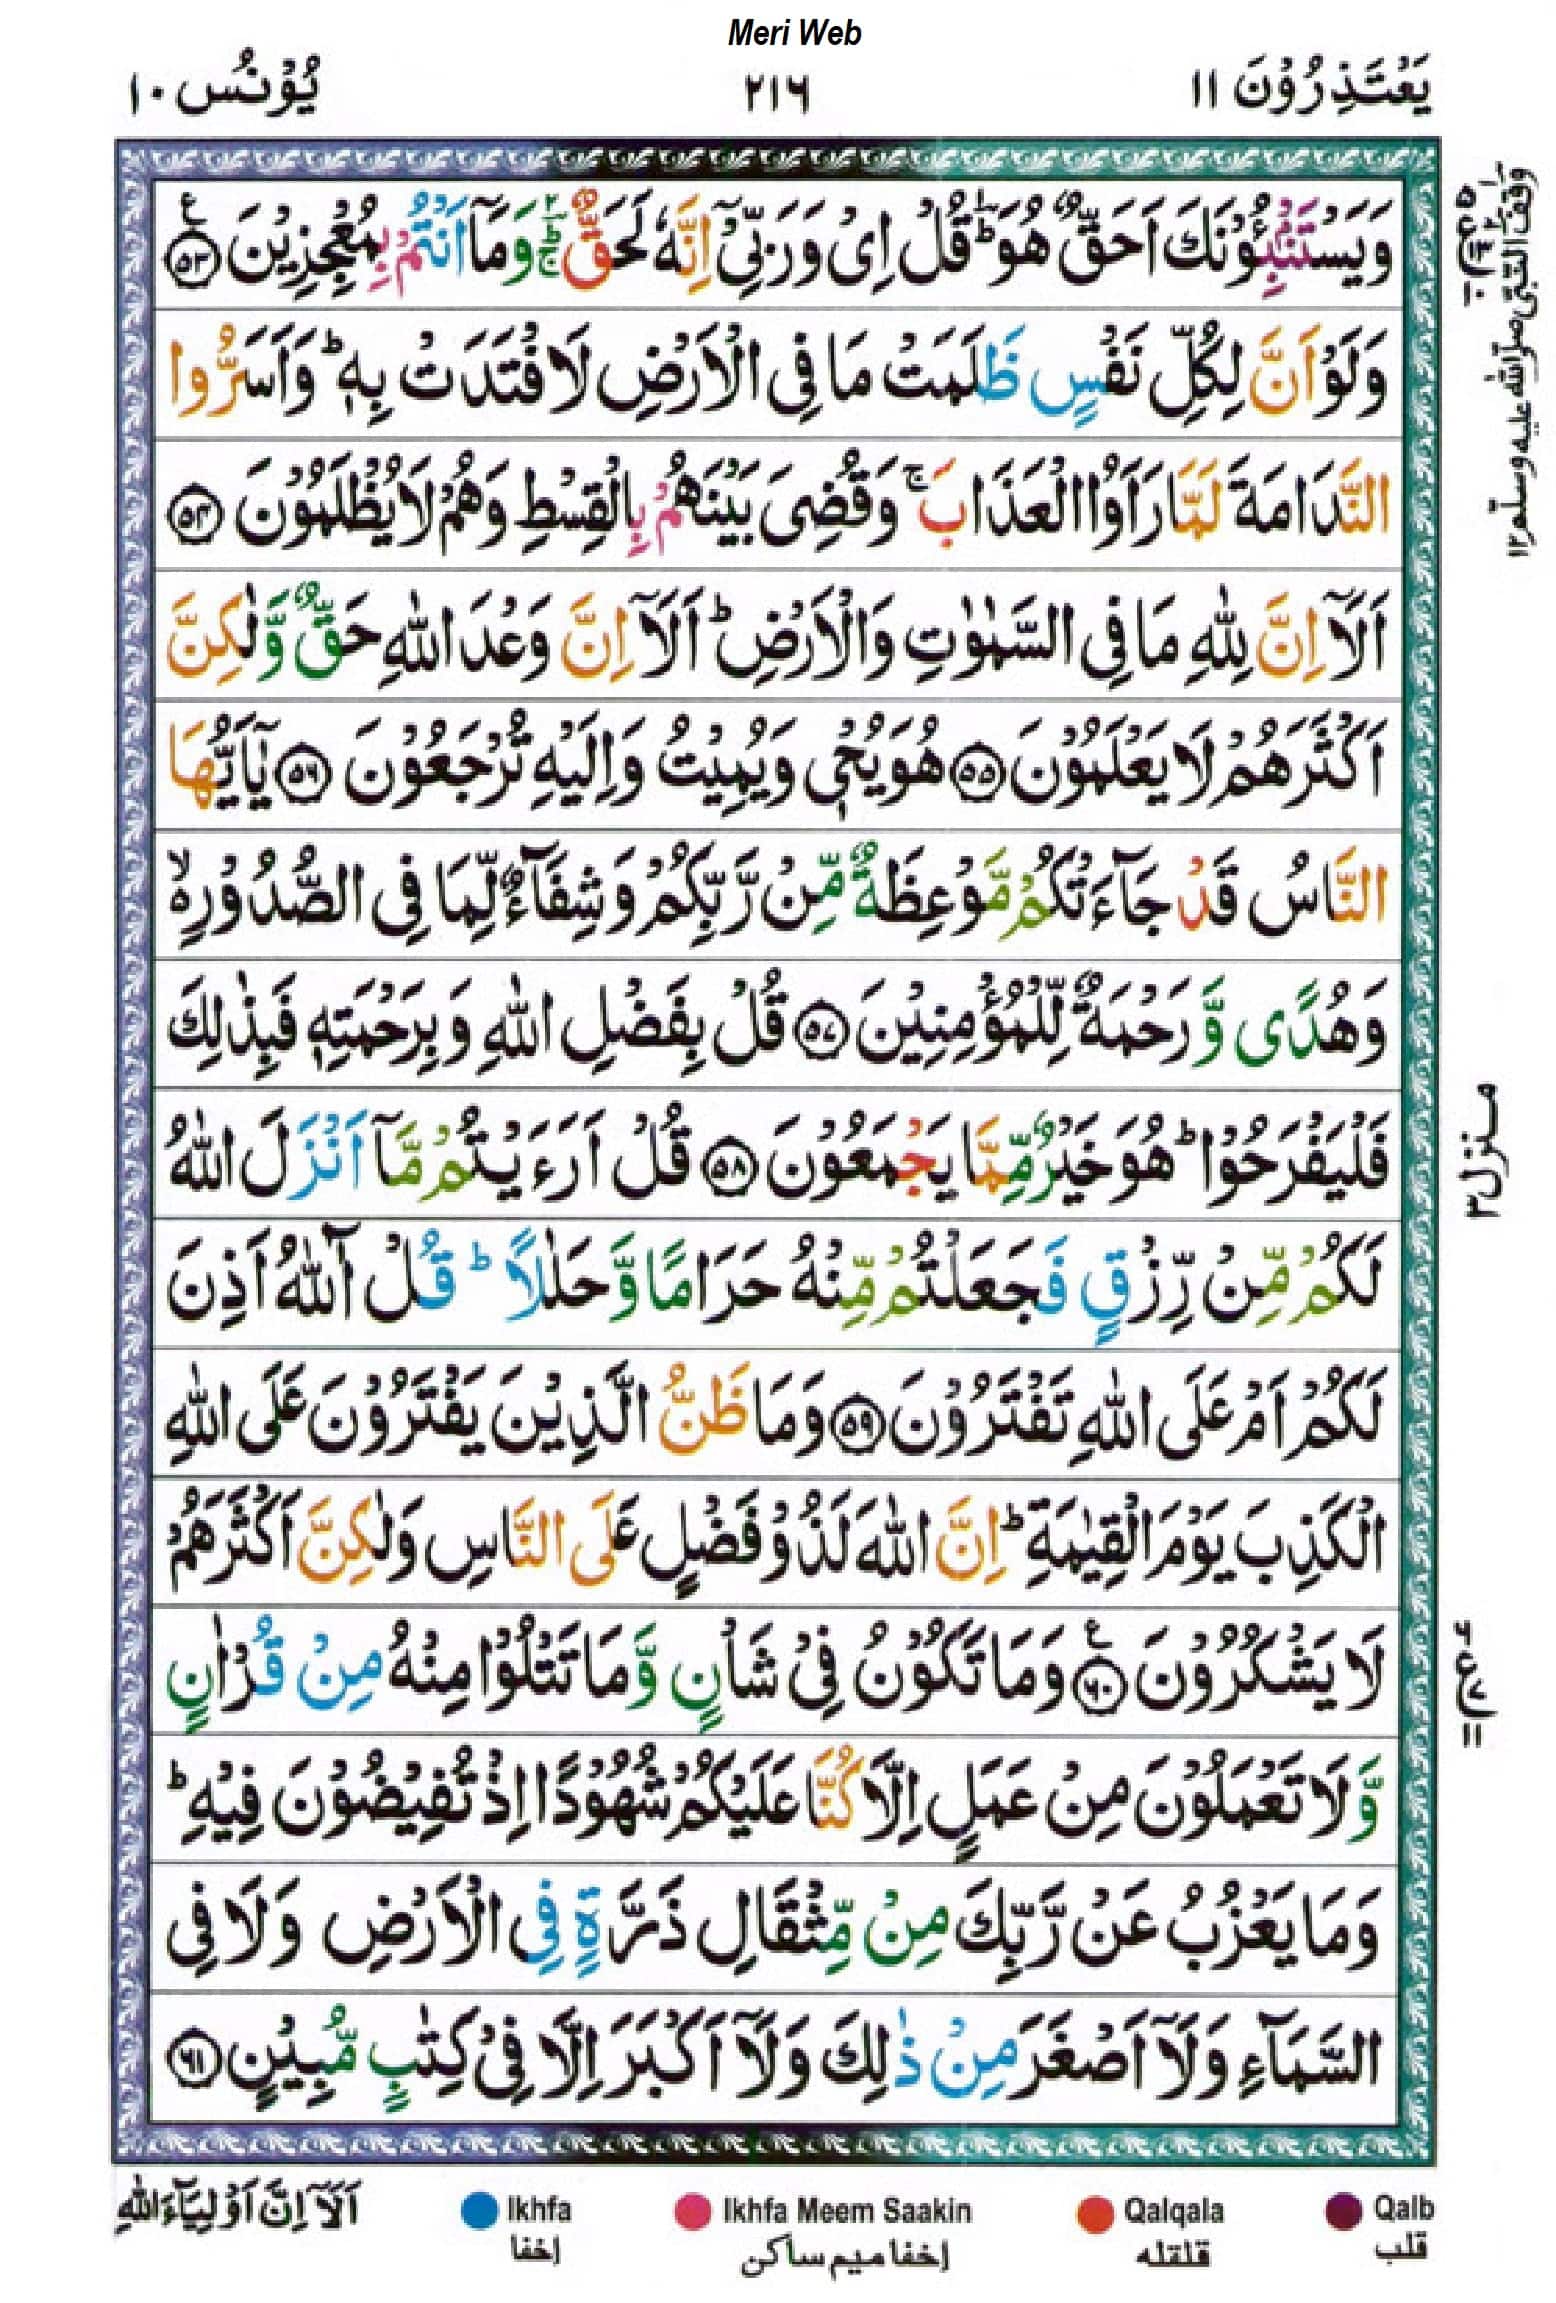 Meri Web
يَعْتَذِرُوْنَ ١١
٢١٦
يُوْنُس ١٠
وَيَسْتَنْۢبِـُٔوْنَكَ اَحَقٌّ هُوَ ؕ قُلْ اِىْ وَرَبِّىْۤ اِنَّهٗ لَحَقٌّ ؔؕ وَمَاۤ اَنْتُمْ بِمُعْجِزِيْنَ ۧ ﴿۵۳﴾
وَلَوْ اَنَّ لِكُلِّ نَفْسٍ ظَلَمَتْ مَا فِى الْاَرْضِ لَافْتَدَتْ بِهٖ ؕ وَاَسَرُّوا
النَّدَامَةَ لَمَّا رَاَوُا الْعَذَابَ ۚ وَقُضِىَ بَيْنَهُمْ بِالْقِسْطِ وَهُمْ لَا يُظْلَمُوْنَ ﴿۵۴﴾
اَلَاۤ اِنَّ لِلّٰهِ مَا فِى السَّمٰوٰتِ وَالْاَرْضِ ؕ اَلَاۤ اِنَّ وَعْدَ اللّٰهِ حَقٌّ وَّلٰكِنَّ
اَكْثَرَهُمْ لَا يَعْلَمُوْنَ ﴿۵۵﴾ هُوَ يُحْىٖ وَيُمِيْتُ وَاِلَيْهِ تُرْجَعُوْنَ ﴿۵۶﴾ يٰۤاَيُّهَا
النَّاسُ قَدْ جَآءَتْكُمْ مَّوْعِظَةٌ مِّنْ رَّبِّكُمْ وَشِفَآءٌ لِّمَا فِى الصُّدُوْرِ ۙ۬
وَهُدًى وَّ رَحْمَةٌ لِّلْمُؤْمِنِيْنَ ﴿۵۷﴾ قُلْ بِفَضْلِ اللّٰهِ وَبِرَحْمَتِهٖ فَبِذٰلِكَ
فَلْيَفْرَحُوْا ؕ هُوَ خَيْرٌ مِّمَّا يَجْمَعُوْنَ ﴿۵۸﴾ قُلْ اَرَءَيْتُمْ مَّاۤ اَنْزَلَ اللّٰهُ
لَكُمْ مِّنْ رِّزْقٍ فَجَعَلْتُمْ مِّنْهُ حَرَامًا وَّ حَلٰلًا ؕ قُلْ آٰللّٰهُ اَذِنَ
لَكُمْ اَمْ عَلَى اللّٰهِ تَفْتَرُوْنَ ﴿۵۹﴾ وَمَا ظَنُّ الَّذِيْنَ يَفْتَرُوْنَ عَلَى اللّٰهِ
الْكَذِبَ يَوْمَ الْقِيٰمَةِ ؕ اِنَّ اللّٰهَ لَذُوْ فَضْلٍ عَلَى النَّاسِ وَلٰكِنَّ اَكْثَرَهُمْ
لَا يَشْكُرُوْنَ ۧ ﴿۶۰﴾ وَمَا تَكُوْنُ فِىْ شَاْنٍ وَّ مَا تَتْلُوْا مِنْهُ مِنْ قُرْاٰنٍ
وَّ لَا تَعْمَلُوْنَ مِنْ عَمَلٍ اِلَّا كُنَّا عَلَيْكُمْ شُهُوْدًا اِذْ تُفِيْضُوْنَ فِيْهِ ؕ
وَمَا يَعْزُبُ عَنْ رَّبِّكَ مِنْ مِّثْقَالِ ذَرَّةٍ فِى الْاَرْضِ وَلَا فِى
السَّمَآءِ وَلَاۤ اَصْغَرَ مِنْ ذٰلِكَ وَلَاۤ اَكْبَرَ اِلَّا فِىْ كِتٰبٍ مُّبِيْنٍ ﴿۶۱﴾
وقف النبی صلی اللہ علیہ وسلم ١٢
منزل ٣
Qalb
قلب
Qalqala
قلقله
Ikhfa Meem Saakin
إخفا ميم ساكن
Ikhfa
إخفا
اَلَاۤ اِنَّ اَوْلِيَآءَ اللّٰهِ